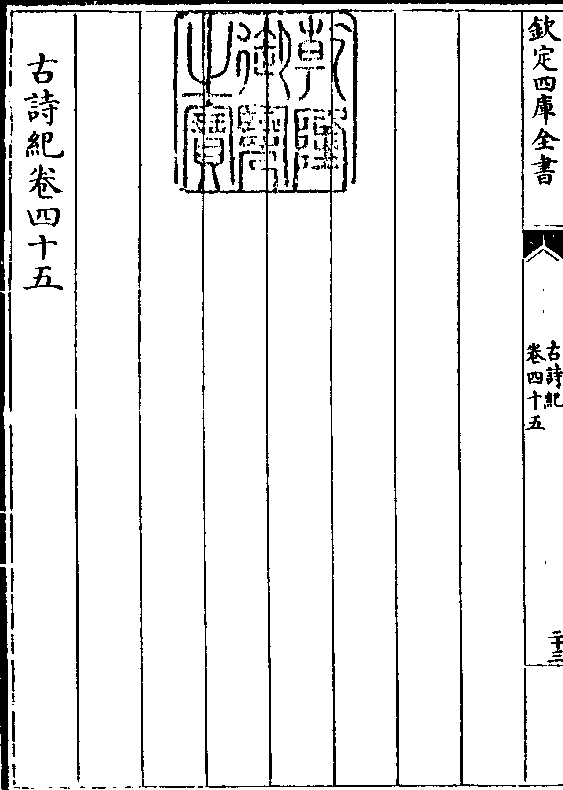 欽定四庫全書
古詩紀
卷四十五
二十三
乾隆
御覽
之寶
古詩紀卷四十五